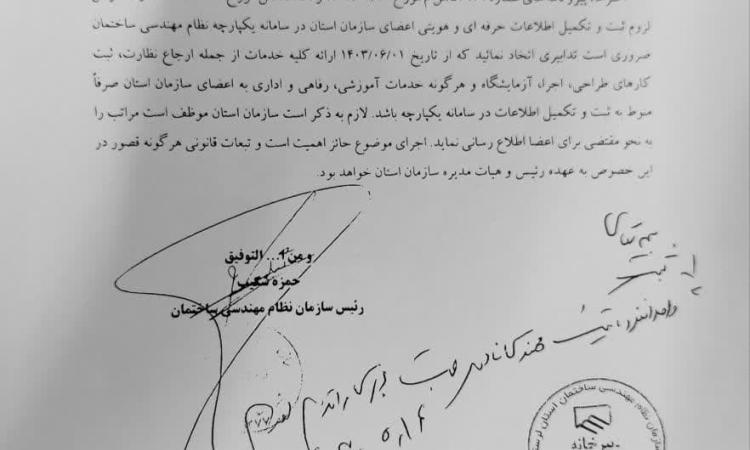 لزوم ثبت و تکمیل اطلاعات حرفه ای و هویتی اعضای سازمان استان در سامانه یکپارچه نظام مهندسی ساختمان
ضروری است تدابیری اتخاذ نمائید که از تاریخ ۱۴۰۳/۰۶/۰۱ ارائه کلیه خدمات از جمله ارجاع نظارت، ثبت
کارهای طراحی، اجرا، آزمایشگاه و هرگونه خدمات آموزشی، رفاهی و اداری به اعضای سازمان استان صرفاً
منوط به ثبت و تکمیل اطلاعات در سامانه یکپارچه باشد. لازم به ذکر است سازمان استان موظف است مراتب را
به نحو مقتضی برای اعضا اطلاع رسانی نماید. اجرای موضوع حائز اهمیت است و تبعات قانونی هرگونه قصور در
این خصوص به عهده رئیس و هیات مدیره سازمان استان خواهد بود.
و من ا... التوفیق
حمزه شکیب
رئیس سازمان نظام مهندسی ساختمان
بسمه تعالی
ثبت
سازمان نظام مهندسی ساختمان استان
دبیرخانه